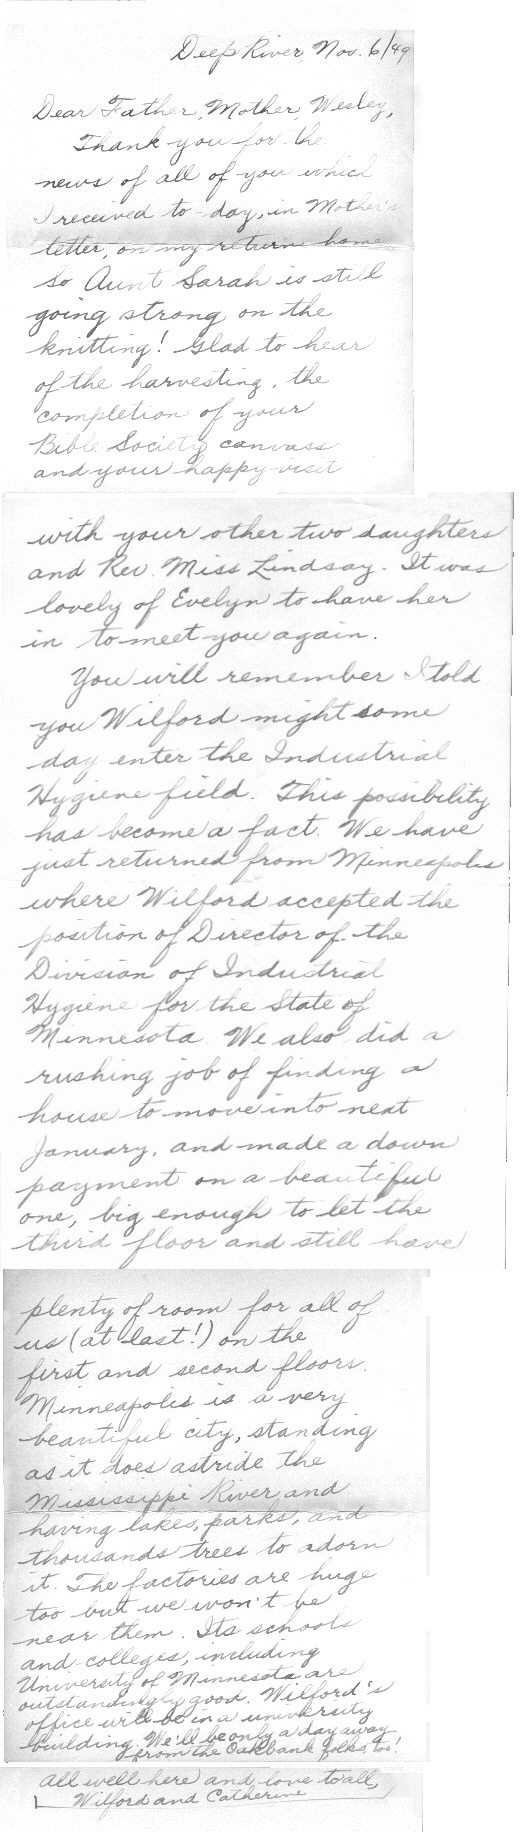 Deep River, Nov. 6/49
Dear Father, Mother, Wesley,
Thank you for the
news of all of you which
I received to-day, in Mother's
letter, on my return home.
So Aunt Sarah is still
going strong on the
knitting! Glad to hear
of the harvesting, the
completion of your
Bible Society canvass
and your happy visit
with your other two daughters
and Rev. Miss Lindsay. It was
lovely of Evelyn to have her
in to meet you again.
You will remember I told
you Wilford might some
day enter the Industrial
Hygiene field. This possibility
has become a fact. We have
just returned from Minneapolis
where Wilford accepted the
position of Director of the
Division of Industrial
Hygiene for the State of
Minnesota. We also did a
rushing job of finding a
house to move into next
January, and made a down
payment on a beautiful
one, big enough to let the
third floor and still have
plenty of room for all of
us (at last!) on the
first and second floors.
Minneapolis is a very
beautiful city, standing
as it does astride the
Mississippi River and
having lakes, parks, and
thousands trees to adorn
it. The factories are huge
too but we won't be
near them. Its schools
and colleges, including
University of Minnesota are
outstandingly good. Wilford's
office will be in a university
building. We'll be only a day away
from the Oakbank folks too!
All well here and love to all,
Wilford and Catherine